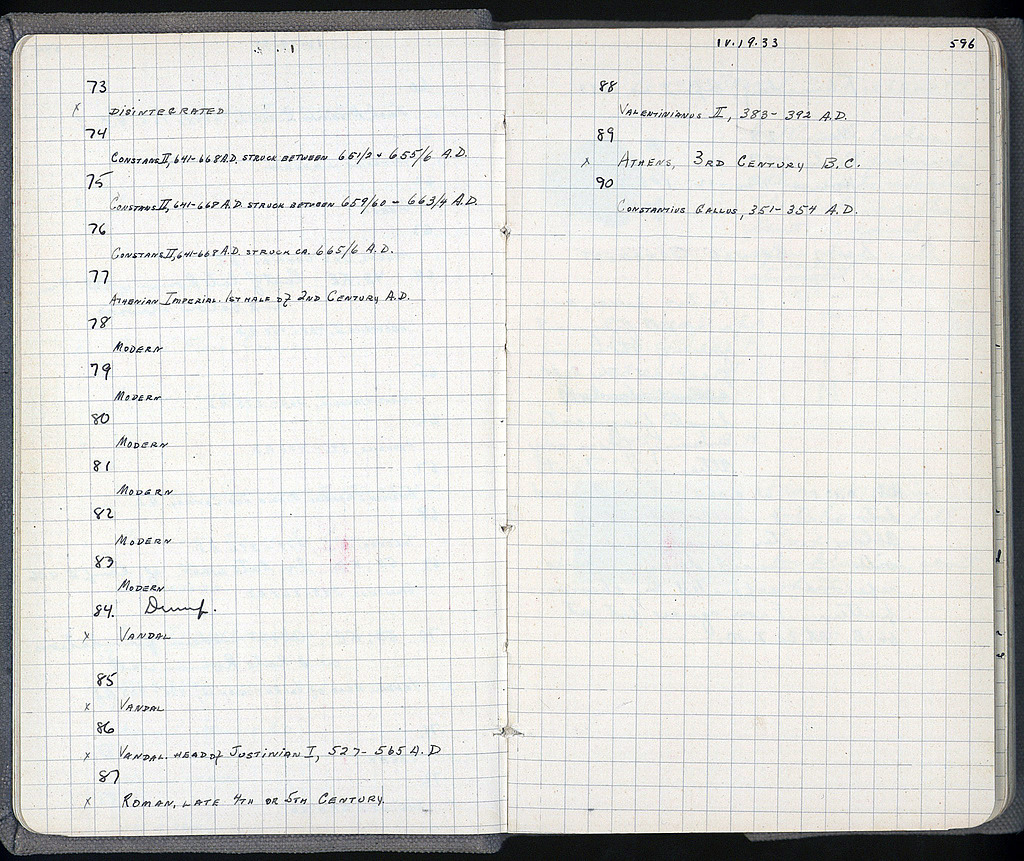 73
x DISINTEGRATED
74
CONSTANS II, 641-668 A.D. STRUCK BETWEEN 651/2 & 655/6 A.D.
75
CONSTANS II, 641-668 A.D. STRUCK BETWEEN 659/60 - 663/4 A.D.
76
CONSTANS II, 641-668 A.D. STRUCK CA. 665/6 A.D.
77
ATHENIAN IMPERIAL. 1ST HALF OF 2ND CENTURY A.D.
78
MODERN
79
MODERN
80
MODERN
81
MODERN
82
MODERN
83
MODERN
84. Dump.
x VANDAL
85
x VANDAL
86
x VANDAL. HEAD OF JUSTINIAN I, 527-565 A.D
87
x ROMAN, LATE 4TH OR 5TH CENTURY.
IV.19.33 596
88
VALENTINIANUS II, 383-392 A.D.
89
x ATHENS, 3RD CENTURY B.C.
90
CONSTANTIUS GALLUS, 351-354 A.D.